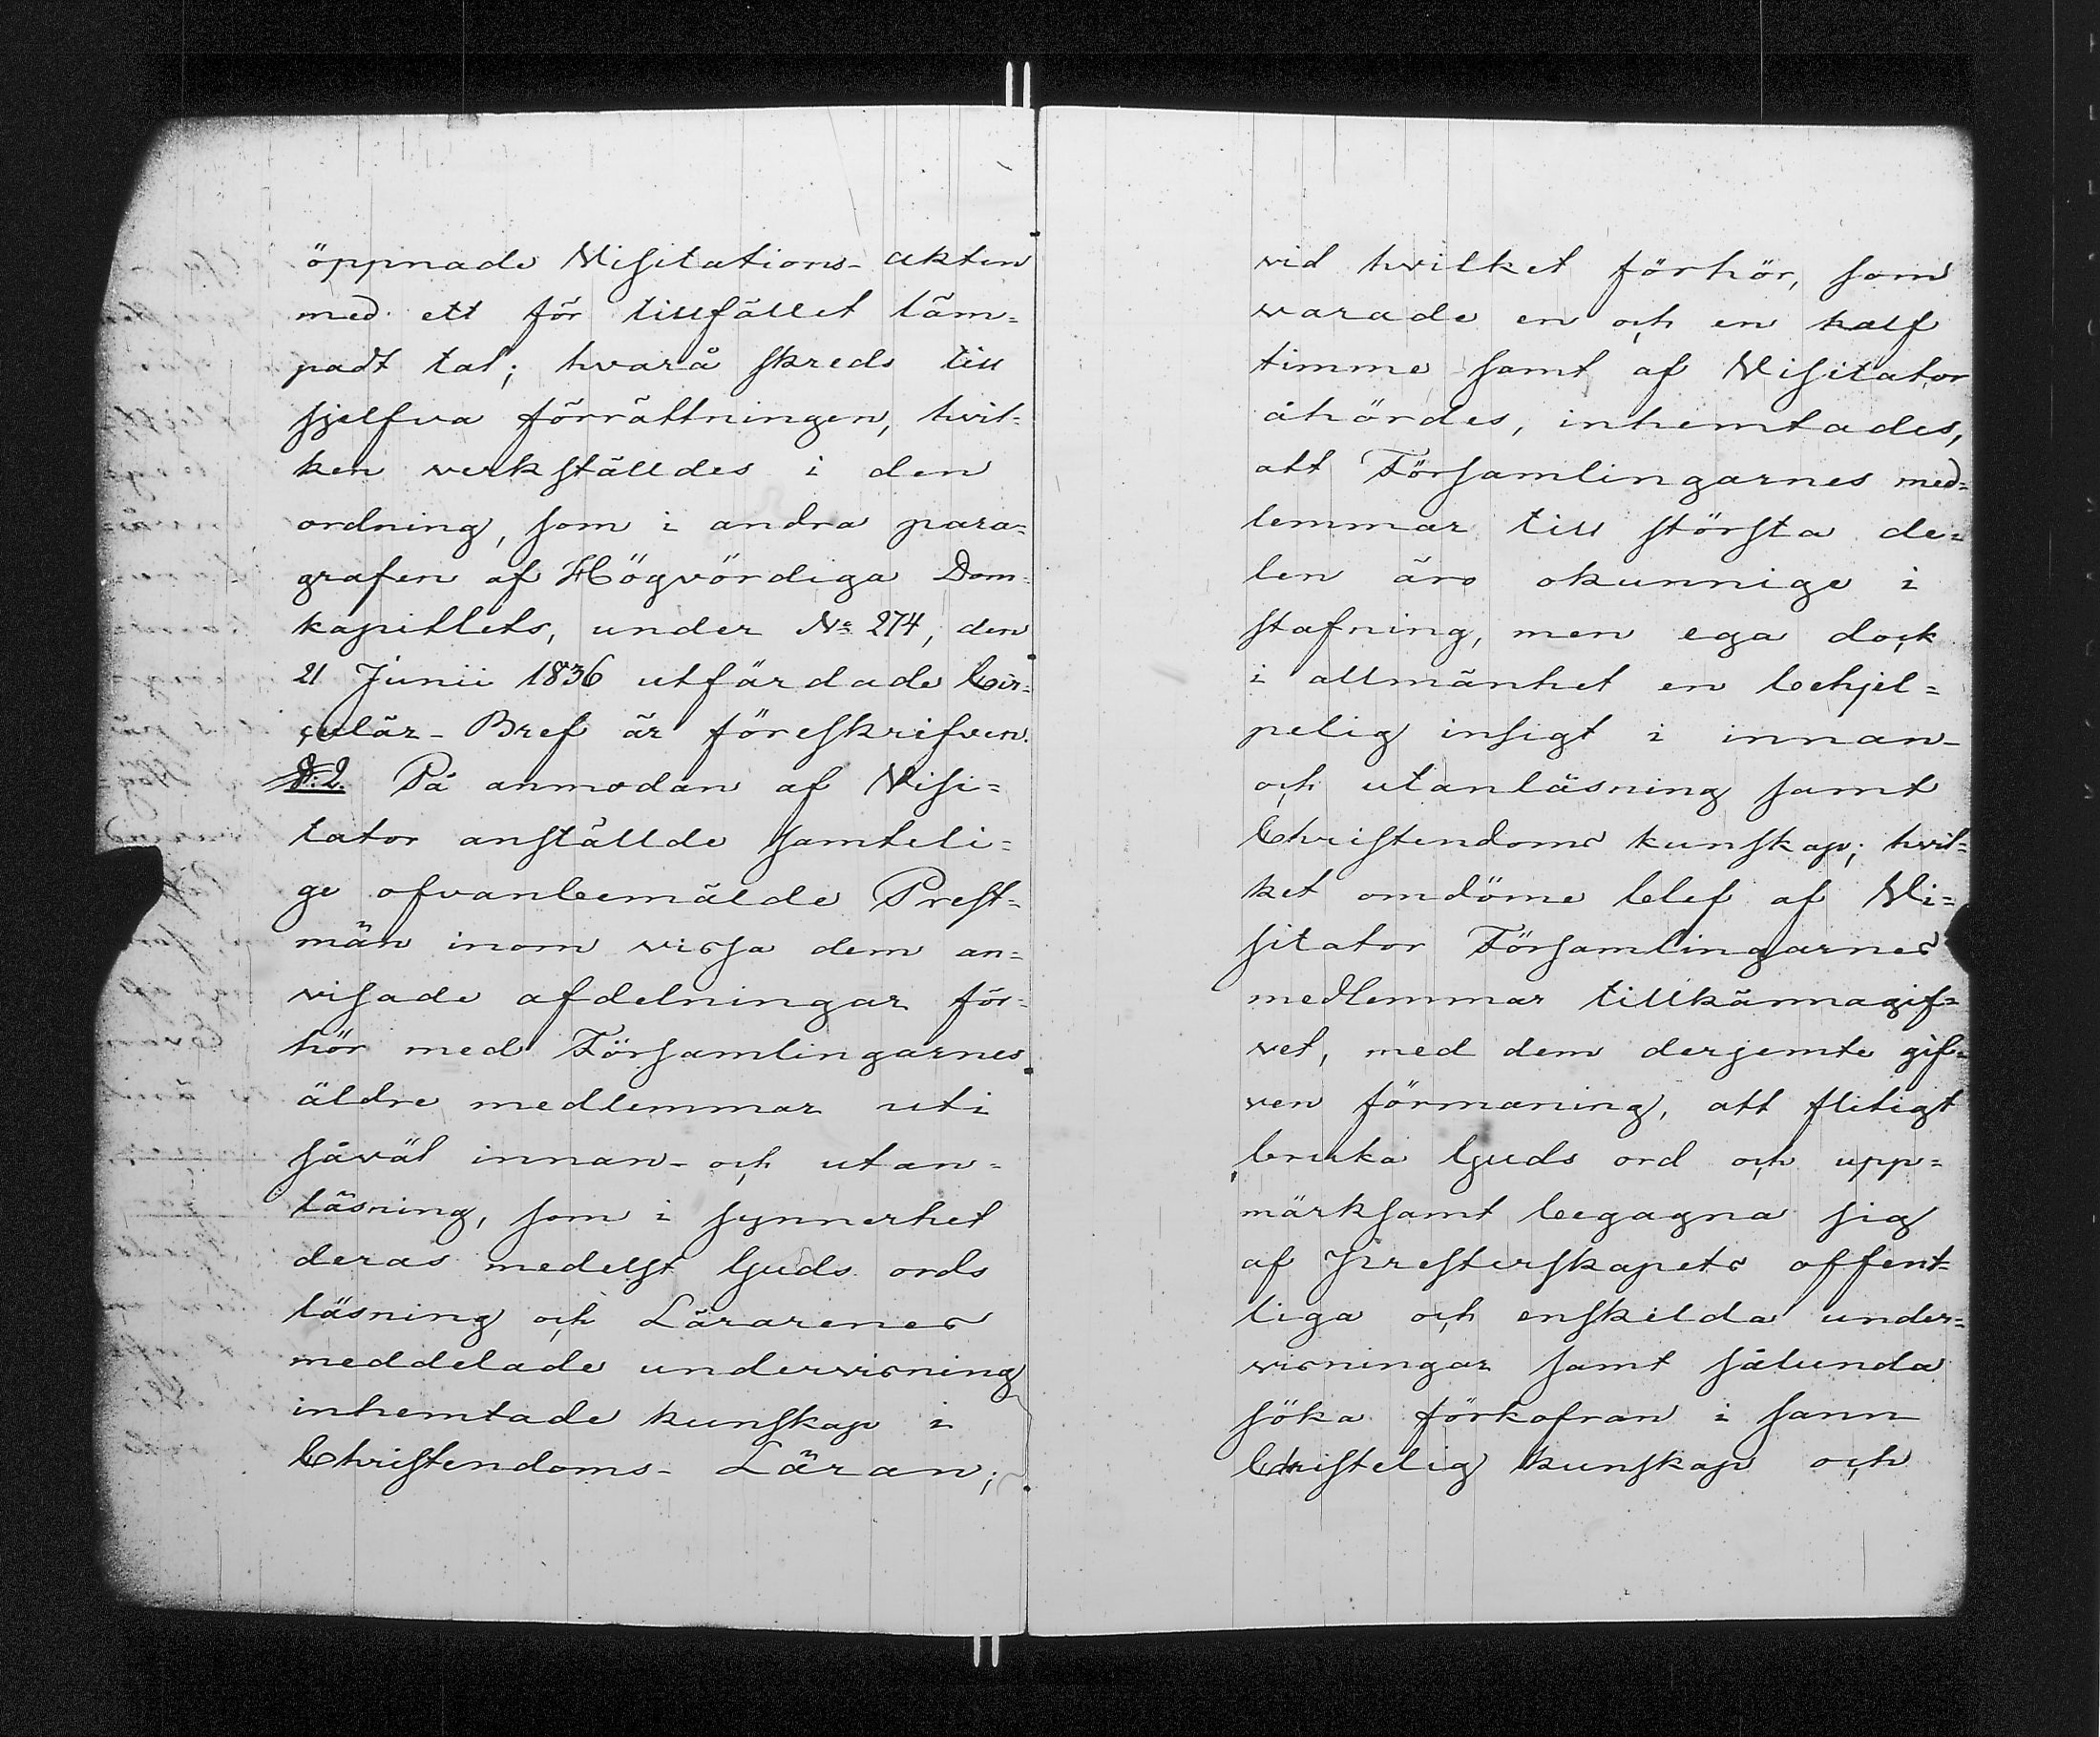 öppnade Visitations-akten
med ett för tillfället läm=
padt tal; hvarå skreds till
sjelfva förrättningen, hvil=
ken verkställdes i den
ordning, som i andra para=
grafen af Högvördiga Dom=
kapitlets, under N:o 274, den
21 Junii 1836 utfärdade Cir=
culär-Bref är föreskrifven.
§.2. På anmodan af Visi=
tator anställde samteli=
ge ofvanbemälde Prest=
män inom vissa dem an=
visade afdelningar för=
hör med Församlingarnes
äldre medlemmar uti
såväl innan- och utan=
läsning, som i synnerhet
deras medelst Guds ords
läsning och Lärarenes
meddelade undervisning
inhemtade kunskap i
Christendoms-Läran;
vid hvilket förhör, som
varade en och en half
timme samt af Visitator
åhördes, inhemtades,
att Församlingarnes med=
lemmar till största de=
len äro okunnige i
stafning, men ega dock
i allmänhet en behjel=
pelig insigt i innan-
och utanläsning samt
Christendoms kunskap; hvil=
ket omdöme blef af Vi=
sitator Församlingarnes
medlemmar tillkännagif=
vet, med dem derjemte gif=
ven förmaning, att flitigt
bruka Guds ord och upp=
märksamt begagna sig
af Presterskapets offent=
liga och enskilda under=
visningar samt sålunda
söka förkofran i sann
Christelig kunskap och